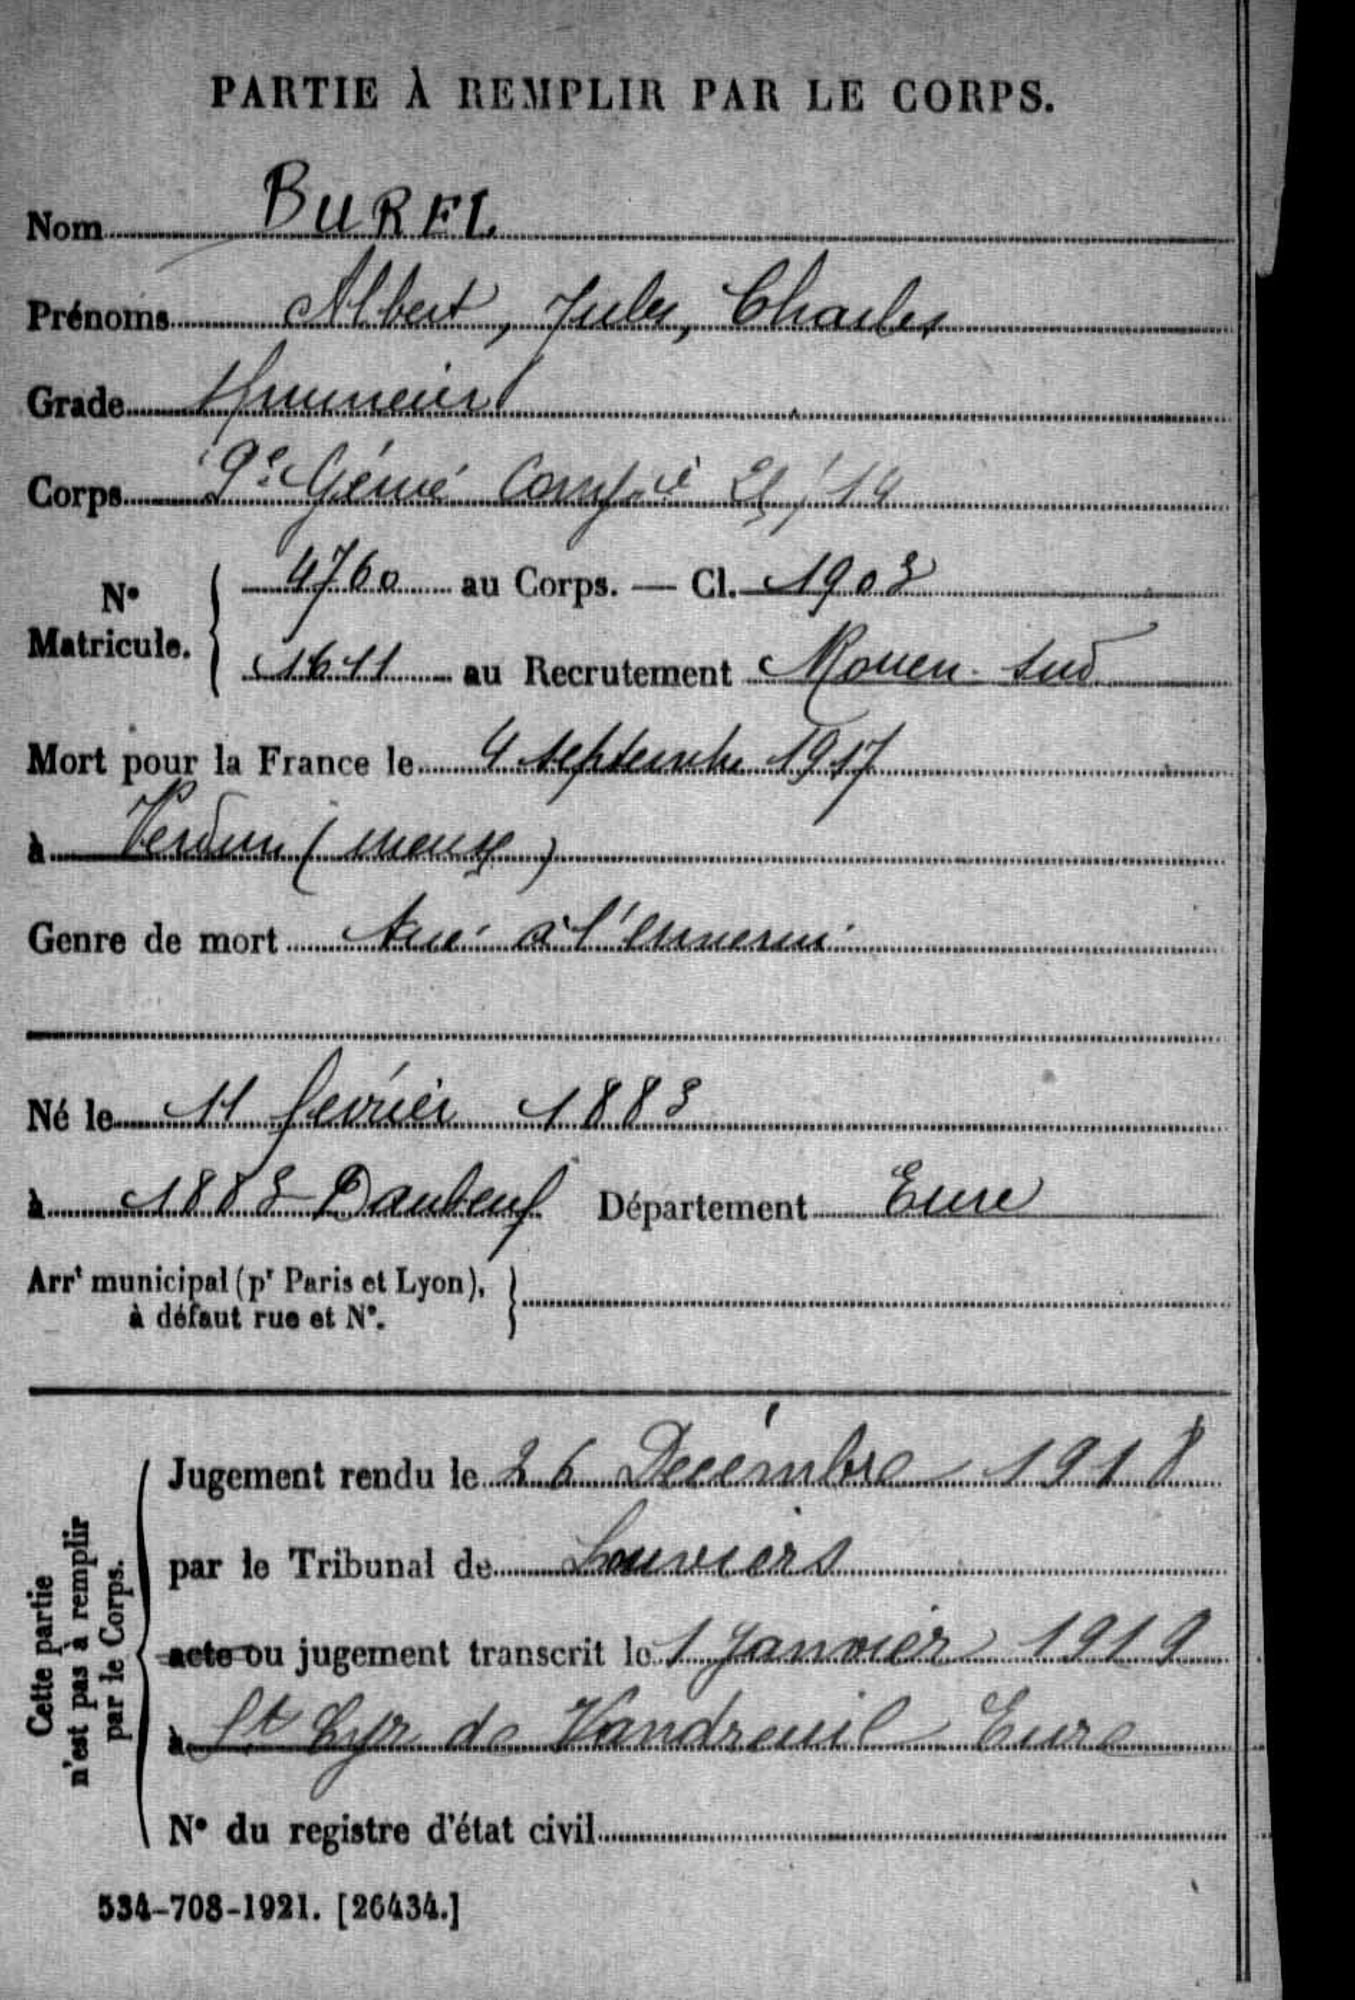 PARTIE À REMPLIR PAR LE CORPS.
Nom BUREL
Prénoms Albert, Jules, Charles
Grade
Corps 9e Génie Compie 21/14
N° Matricule. 4760 au Corps. — Cl. 1903
1611 au Recrutement Rouen Sud
Mort pour la France le 4 septembre 1917
à Verdun (Meuse)
Genre de mort tué à l'ennemi
Né le 11 février 1883
à 1883 Daubeuf Département Eure
Arrt municipal (pr Paris et Lyon),
à défaut rue et N°.
Cette partie
n'est pas à remplir
par le Corps.
Jugement rendu le 26 Décembre 1918
par le Tribunal de Louviers
acte ou jugement transcrit le 1 Janvier 1919
à St Cyr de Vaudreuil Eure
N° du registre d'état civil
534-708-1921. [26434.]